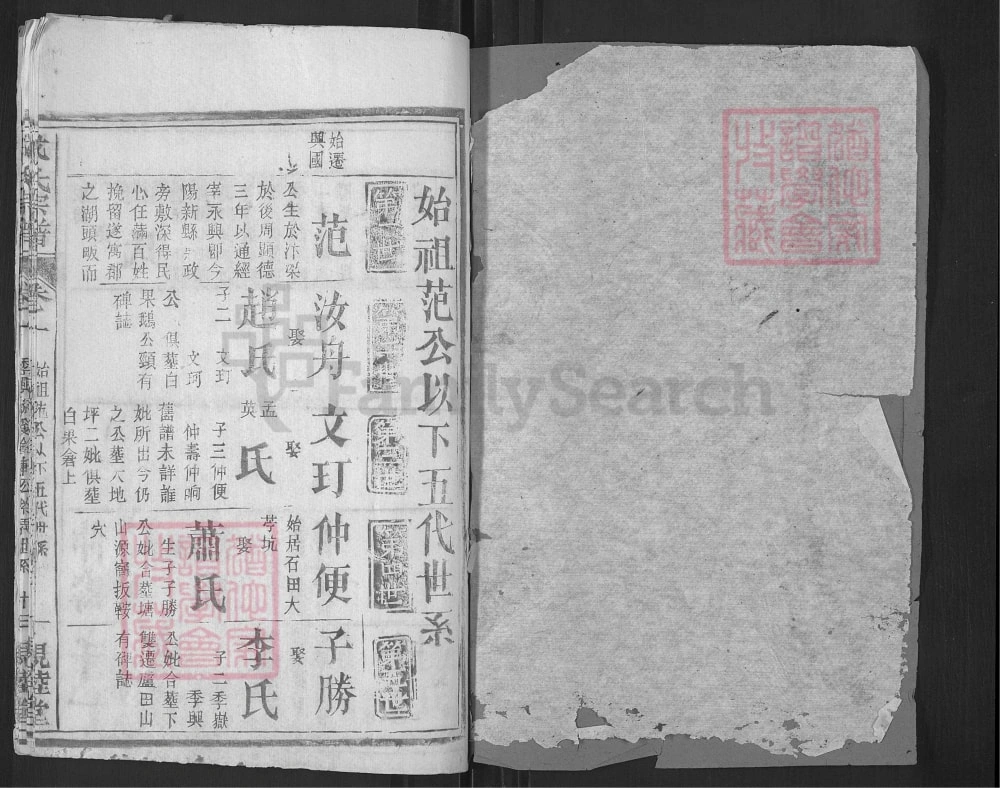 始祖范公以下五代世系
始遷
興國
第一世
范汝舟
公生於汴梁
於後周顯德
三年以通經
宰永興卽今
陽新縣
政
旁敷深得民
心任滿百姓
挽留遂寓郡
之湖頭畈而
娶
趙氏
子二 文玎
文珂
公
俱塟白
果鵝公頸有
碑誌
第三世
文玎
娶
孟
英
氏
子三仲便
仲壽仲晌
舊譜未詳誰
妣所出今仍
之公塟
地
坪二妣俱塟
白果倉上
第四世
仲便
始居石田大
坑
娶
蕭氏
生子子勝
公妣合塟塘
山源
穴
第五世
子勝
娶
李氏
子二季嶽
季興
公妣合塟下
雙遷廬田山
有碑誌
氏宗譜
卷一
始祖范公以下五代世系
十三
FamilySearch